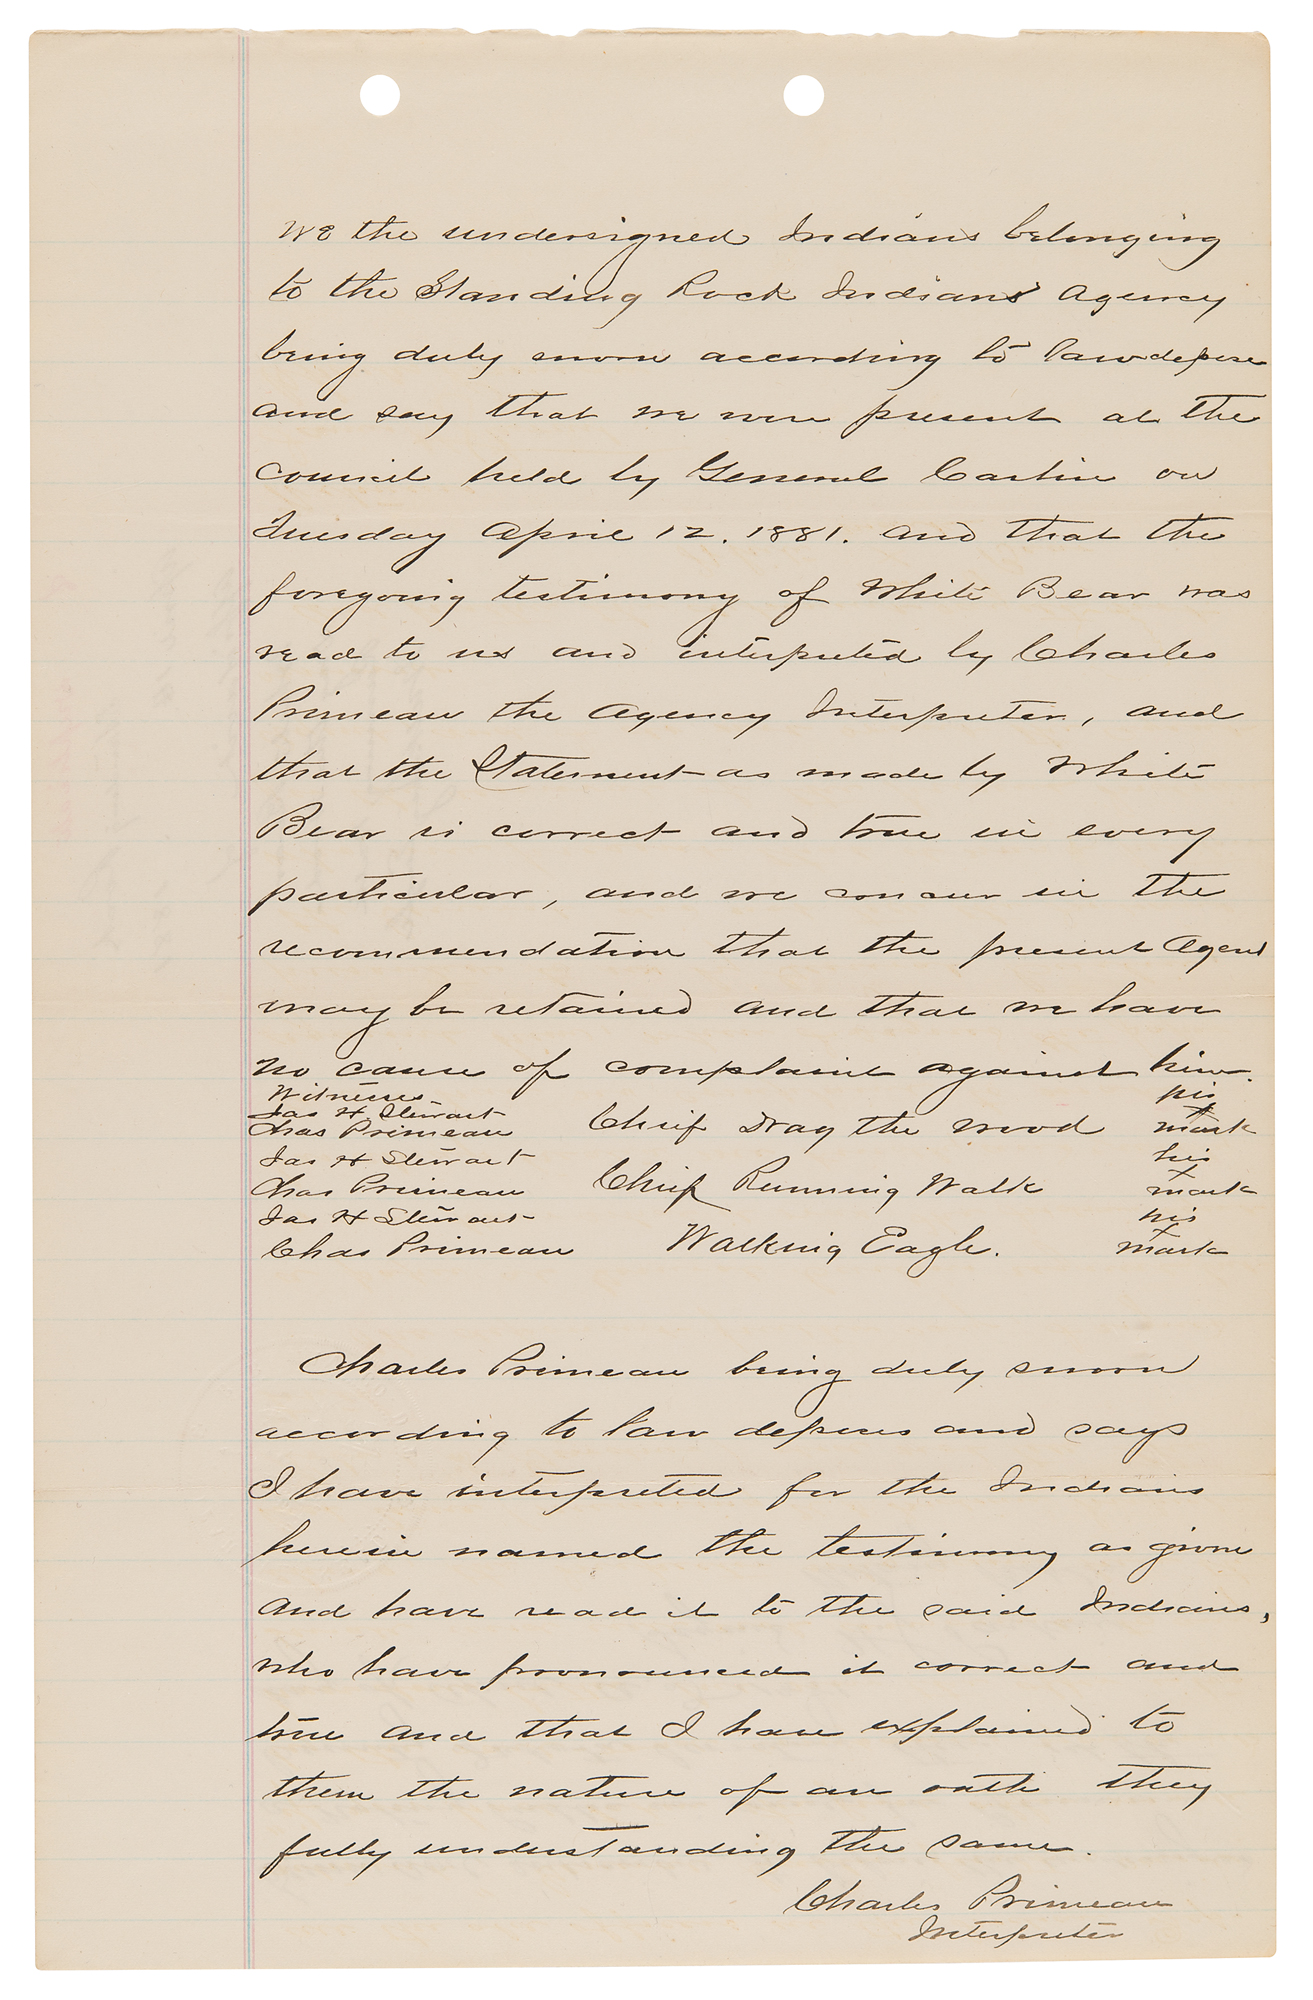 We the undersigned Indians belonging
to the Standing Rock Indians Agency
being duly sworn according to law depose
and say that we were present at the
council held by General Carlin on
Tuesday April 12. 1881. and that the
foregoing testimony of White Bear was
read to us and interpreted by Charles
Primeau the Agency Interpreter, and
that the Statement as made by White
Bear is correct and true in every
particular, and we concur in the
recommendation that the present Agent
may be retained and that we have
no cause of complaint against him.
Witnesses his
Jas H. Stewart x
Chas Primeau Chief Drag the wood mark
Jas H Stewart his
x
Chas Primeau Chief Running Walk mark
Jas H Stewart his
x
Chas Primeau Walking Eagle. mark
Charles Primeau being duly sworn
according to law deposes and says
I have interpreted for the Indians
herein named the testimony as given
and have read it to the said Indians,
who have pronounced it correct and
true and that I have explained to
them the nature of an oath they
fully understanding the same.
Charles Primeau
Interpreter